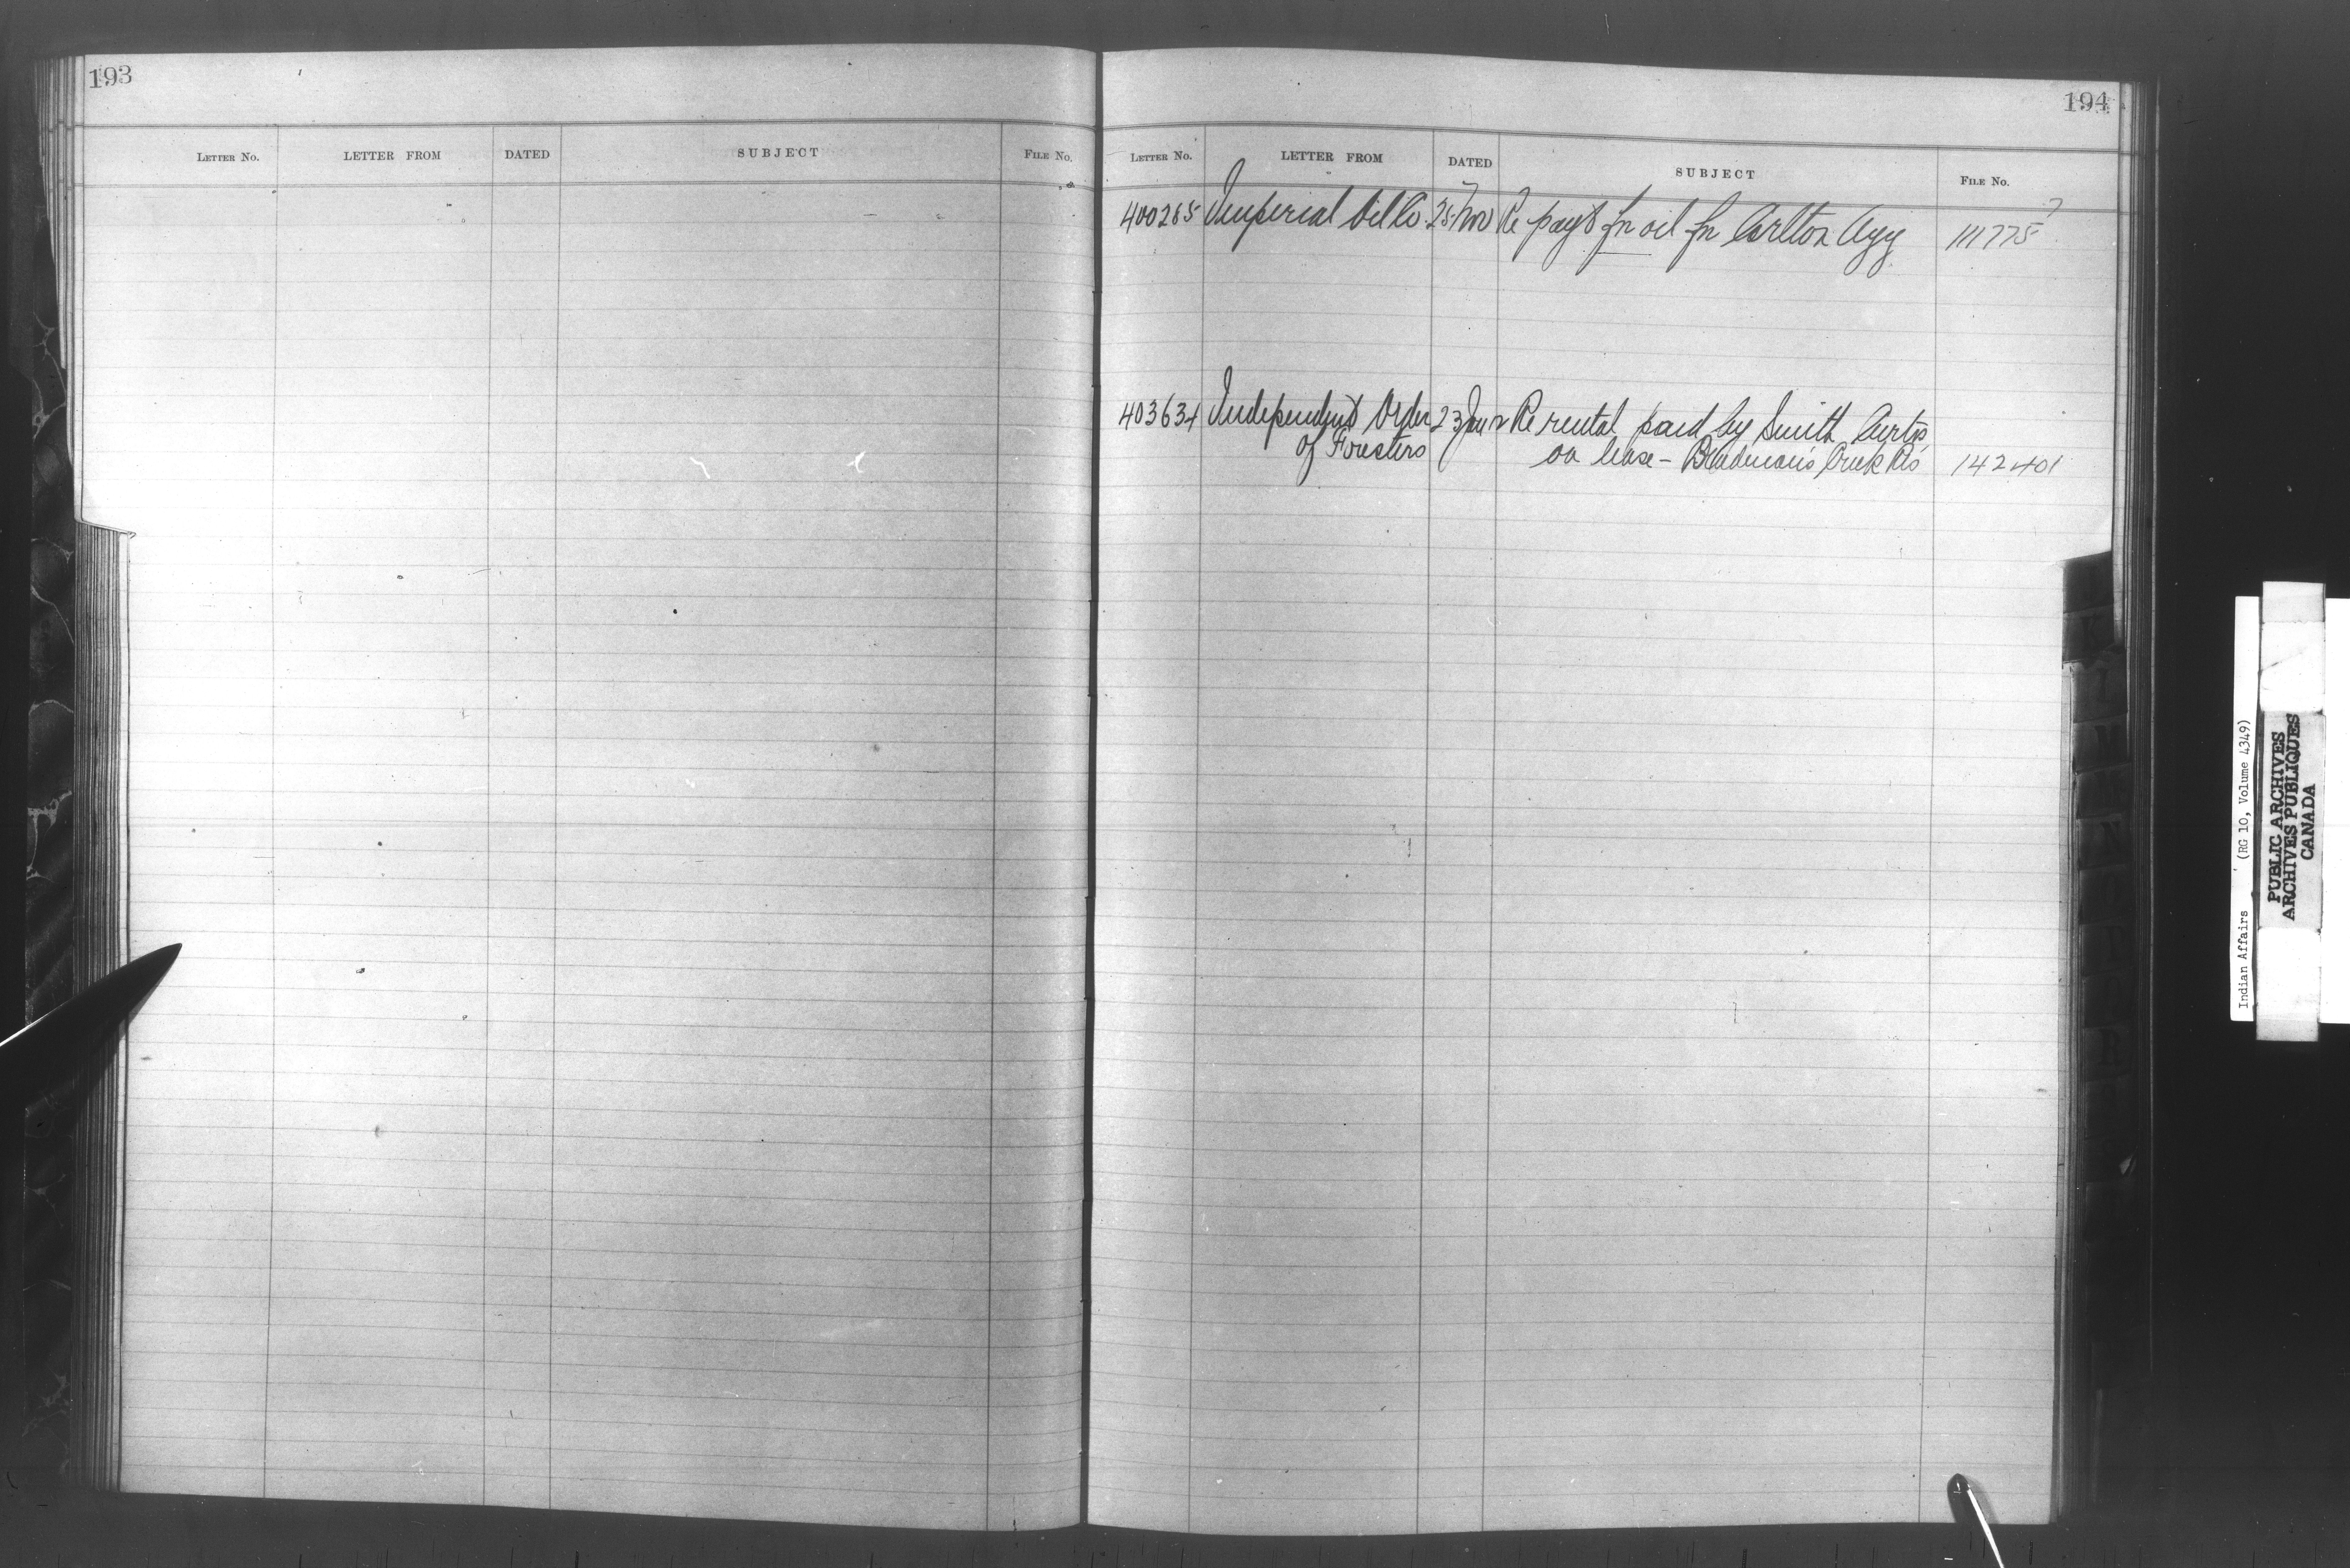 193
LETTER NO. LETTER FROM DATED SUBJECT FILE NO.
194
LETTER NO. LETTER FROM DATED SUBJECT FILE NO.
400265 Imperial Oil Co. 25 Nov Re payt for oil for Carlton Agy 111775
403634 Independent Order 23 Jan Re rental paid by Smith Curtis
of Foresters on lease - Creek Rs 142401
Indian Affairs (RG 10, Volume 4349)
PUBLIC ARCHIVES
ARCHIVES PUBLIQUES
CANADA